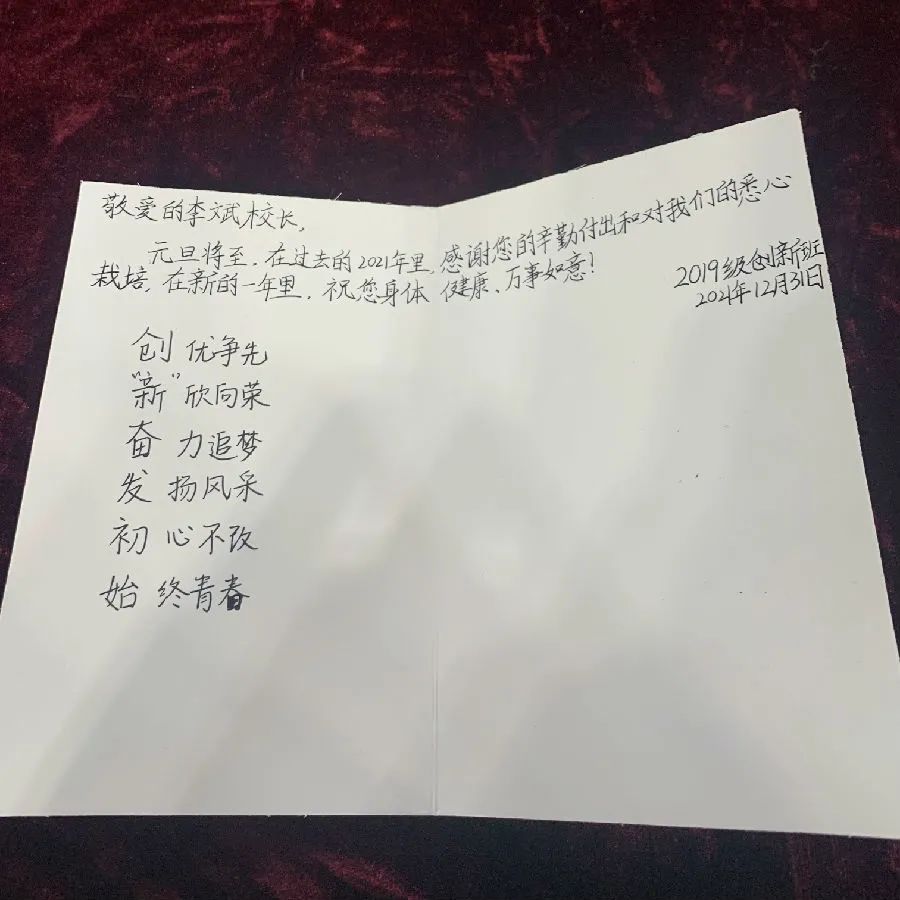 敬爱的李斌校长,
元旦将至,在过去的2021年里,感谢您的辛勤付出和对我们的悉心
栽培,在新的一年里,祝您身体 健康、万事如意!
2019级创新班
2021年12月31日
创 优争先
“新” 欣向荣
奋 力追梦
发 扬风采
初 心不改
始 终青春